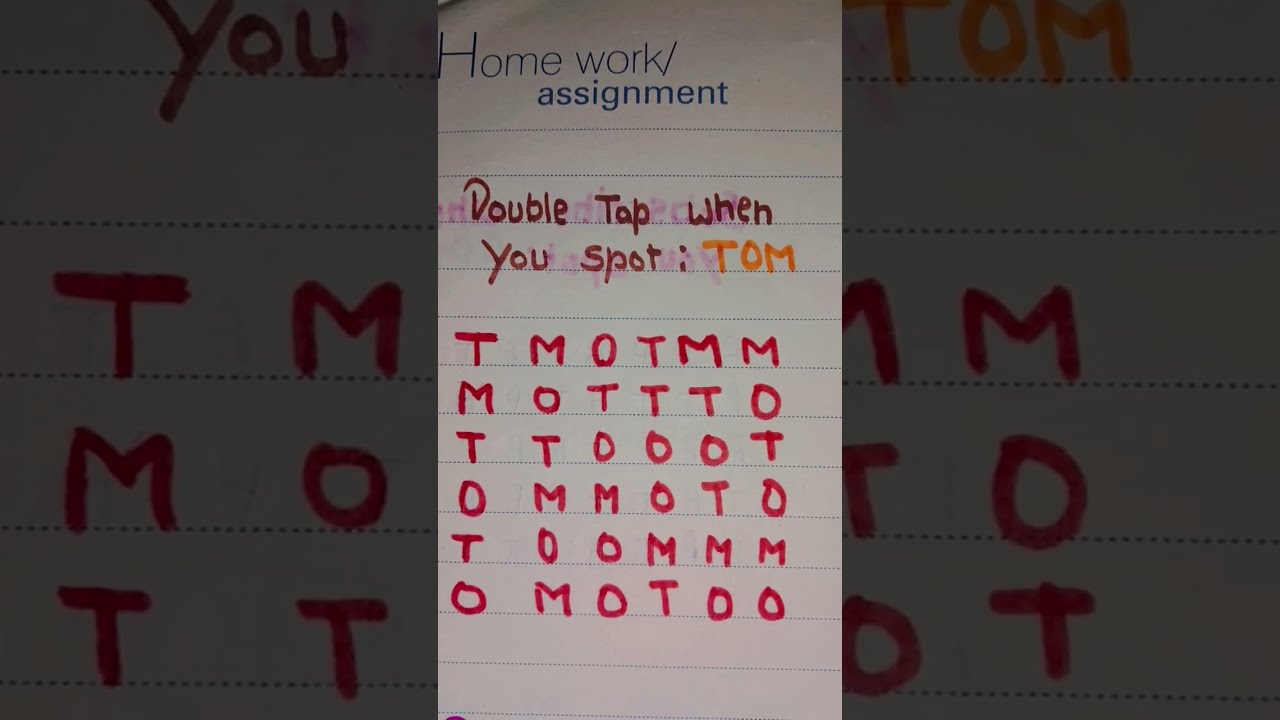 Home work/
assignment
Double Tap when
You spot: TOM
T M O T M M
M O T T T O
T T O O O T
O M M O T O
T O O M M M
O M O T O O